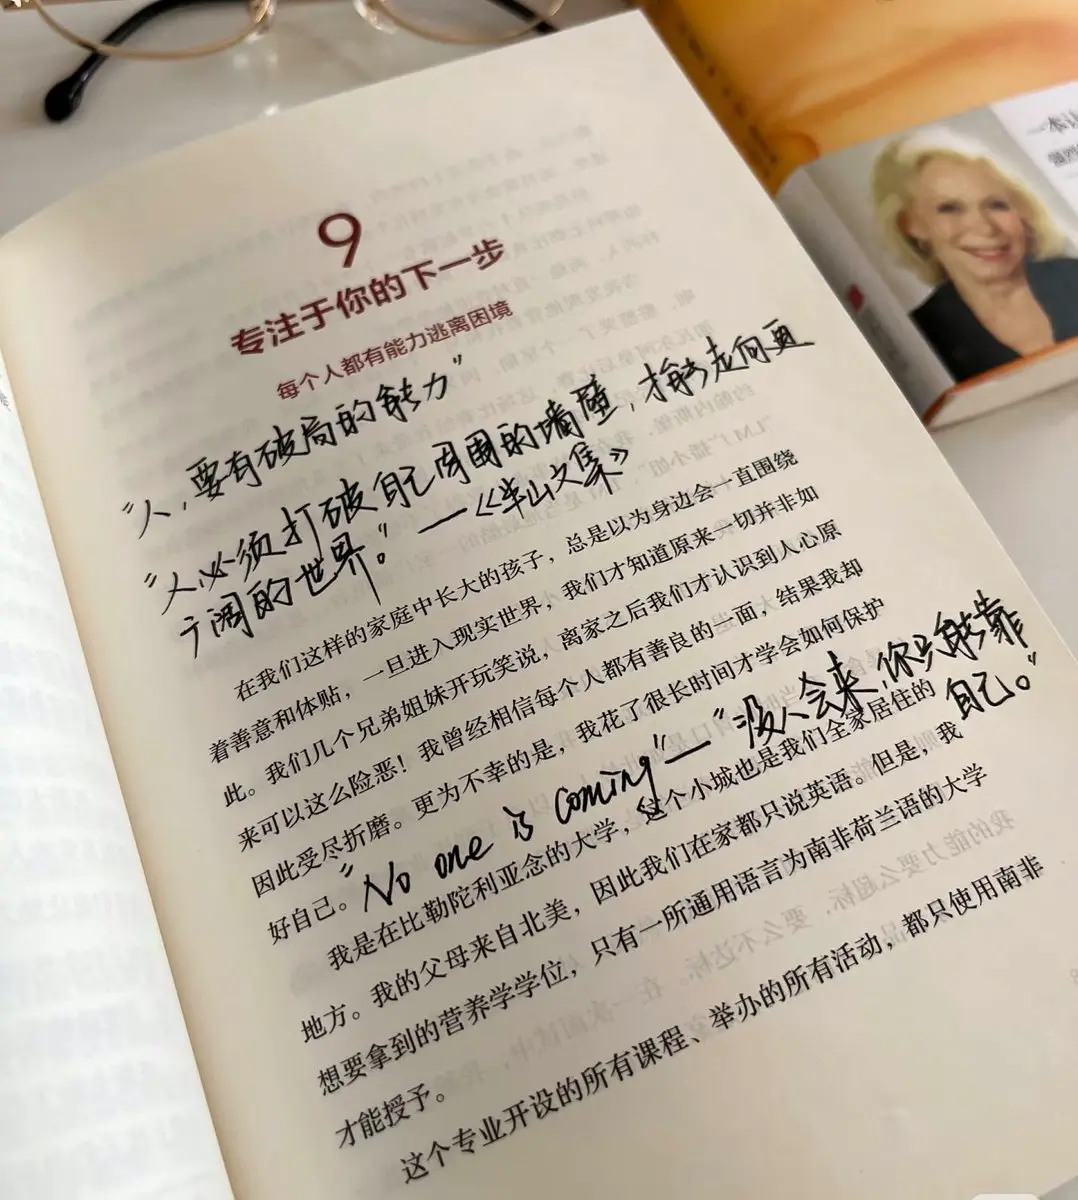 9
专注于你的下一步
每个人都有能力逃离困境
"人,要有破局的能力"
"人必须打破自己周围的墙壁,才能走向更
广阔的世界。"—《半山文集》
在我们这样的家庭中长大的孩子,总是以为身边会一直围绕
着善意和体贴,一旦进入现实世界,我们才知道原来一切并非如
此。我们几个兄弟姐妹开玩笑说,离家之后我们才认识到人心原
来可以这么险恶!我曾经相信每个人都有善良的一面,结果我却
因此受尽折磨。更为不幸的是,我花了很长时间才学会如何保护
好自己。
"No one is coming"—"没人会来,你只能靠
自己。"
我是在比勒陀利亚念的大学,这个小城也是我们全家居住的
地方。我的父母来自北美,因此我们在家都只说英语。但是,我
想要拿到的营养学学位,只有一所通用语言为南非荷兰语的大学
才能授予。
这个专业开设的所有课程、举办的所有活动,都只使用南非
一本让